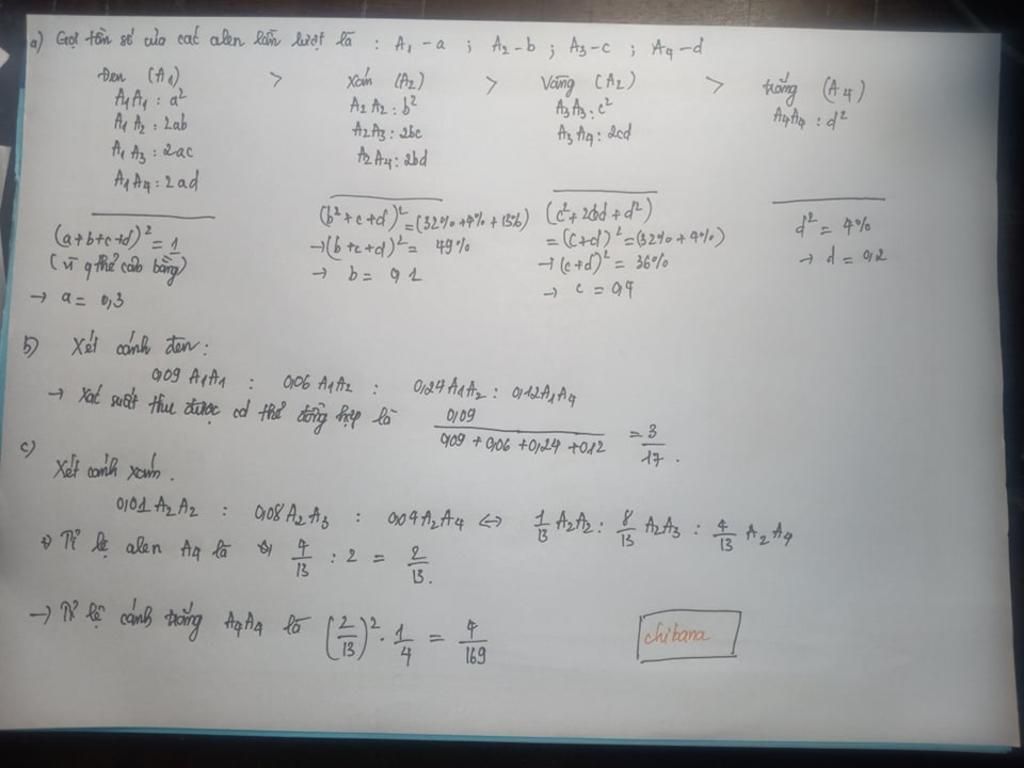 a) Gọi tần số của các alen lần lượt là : A₁ - a ; A₂ - b ; A₃ - c ; A₄ - d
Đen (A₁) > Xám (A₂) > Vàng (A₂) > trắng (A₄)
A₁A₁ : a² A₂A₂ : b² A₃A₃ : c² A₄A₄ : d²
A₁A₂ : 2ab A₂A₃ : 2bc A₃A₄ : 2cd
A₁A₃ : 2ac A₂A₄ : 2bd
A₁A₄ : 2ad
(a+b+c+d)² = 1 (b²+c+d)² = (32%+4%+13%) (c²+2cd+d²) d² = 4%
(vì qthể cân bằng) →(b+c+d)² = 49% = (c+d)² = (32%+4%) → d = 0,2
→ a = 0,3 → b = 0,1 → (c+d)² = 36%
→ c = 0,4
b) Xét cánh đen :
0,09 A₁A₁ : 0,06 A₁A₂ : 0,24 A₁A₂ : 0,12 A₁A₄
→ Xác suất thu được cá thể đồng hợp là 0,09 / (0,09 + 0,06 + 0,24 + 0,12) = 3/17 .
c)
Xét cánh xám .
0,01 A₂A₂ : 0,08 A₂A₃ : 0,04 A₂A₄ ⇔ 1/13 A₂A₂ : 8/13 A₂A₃ : 4/13 A₂A₄
Tỉ lệ alen A₄ là 4/13 : 2 = 2/13 .
→ Tỉ lệ cánh trắng A₄A₄ là (2/13)² . 1/4 = 4/169
chibana